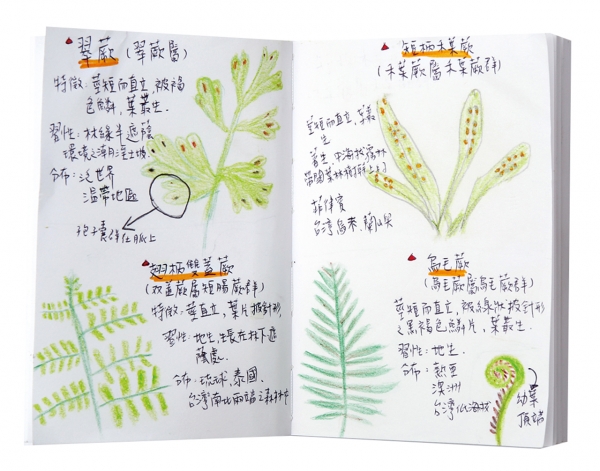 翠蕨(翠蕨屬)
特徵:莖短而直立,被褐
色鱗,葉叢生.
習性:林緣半遮蔭
環境之潮溼土坡.
分布:泛世界
溫帶地區
孢子囊群位脈上
翅柄雙蓋蕨
(双蓋蕨屬短腸蕨群)
特徵:莖直立,葉片披針形
習性:地生,生長在林下遮
蔭處.
分布:琉球,泰國.
台灣南北兩端之森林中
短柄禾葉蕨
(禾葉蕨屬禾葉蕨群)
莖短而直立,葉叢
生
著生,中海拔霧林
帶闊葉林樹幹上
菲律賓
台灣烏來.蘭嶼
烏毛蕨
(烏毛蕨屬烏毛蕨群)
莖短而直立,被線狀披針形
之黑褐色鱗片,葉叢生.
習性:地生.
分布:熱亞
澳洲
台灣低海拔
幼葉
頂端